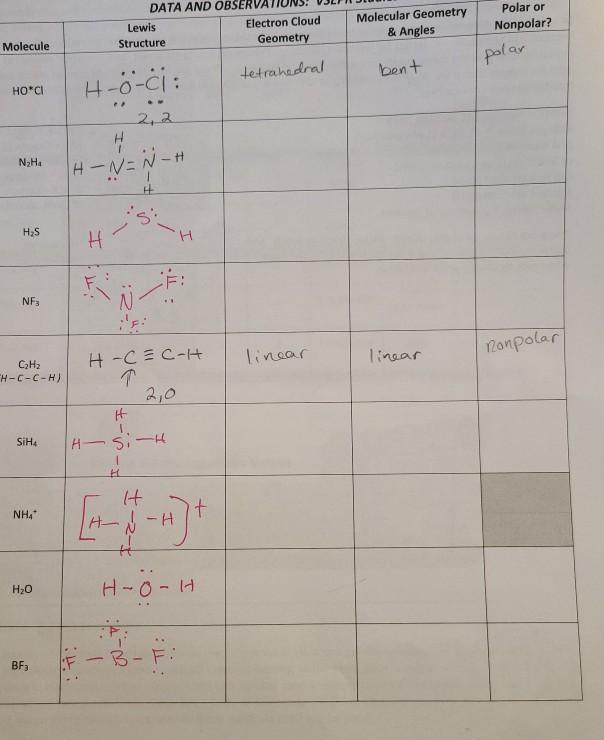 DATA AND OBSERVATIONS:
Molecule
Lewis
Structure
Electron Cloud
Geometry
Molecular Geometry
& Angles
Polar or
Nonpolar?
HO*Cl
H-Ö-Cl:
2,2
tetrahedral
bent
polar
N₂H₄
H
H-N=N-H
H
H₂S
S
H H
NF₃
F: F:
N
:F:
C₂H₂
H-C-C-H)
H-C≡C-H
↑
2,0
linear
linear
nonpolar
SiH₄
H
H-Si-H
H
NH₄⁺
H
[H-N-H]+
H
H₂O
H-Ö-H
BF₃
:F:
:F-B-F: